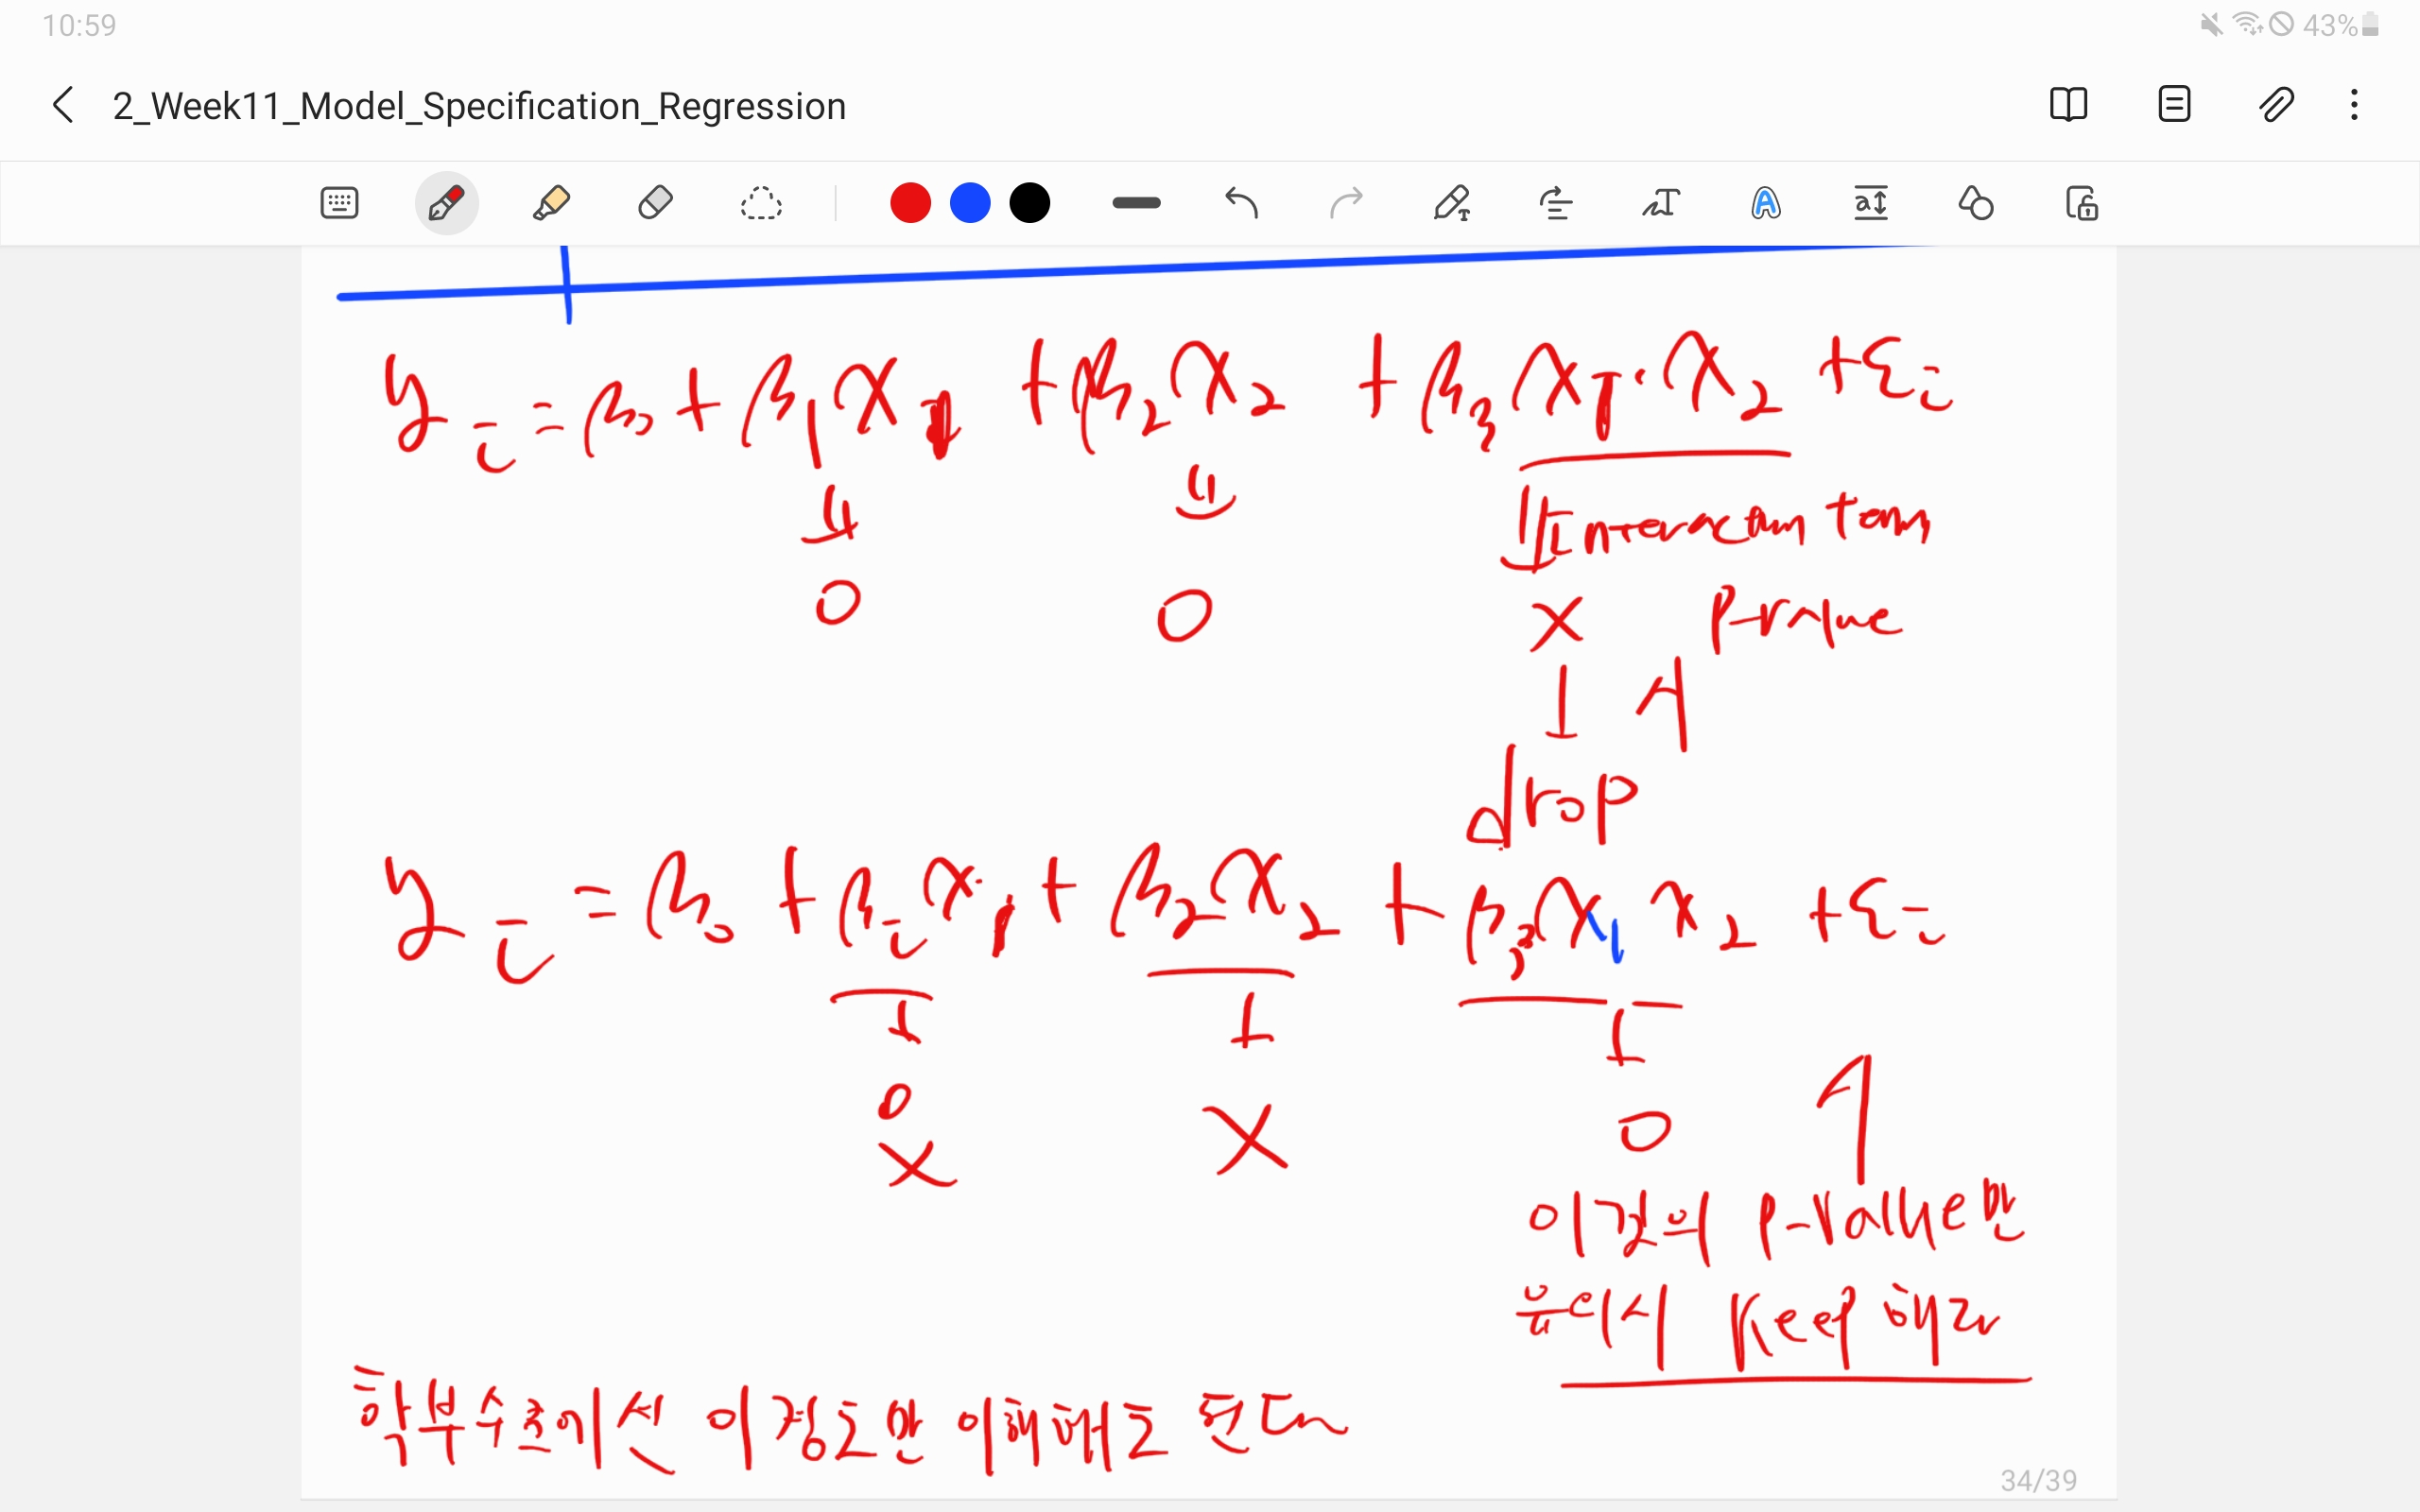 10:59
43%
2_Week11_Model_Specification_Regression
yᵢ = β₀ + β₁x₁ + β₂x₂ + β₃x₁·x₂ + εᵢ
Interaction term
O O X P-value
drop
yᵢ = β₀ + βᵢx₁ + β₂x₂ + β₃x₁x₂ + εᵢ
O
X X O
이것의 P-Value만
봐서 Keep 해라
학부수준에선 이정도만 이해해도 된다
34/39